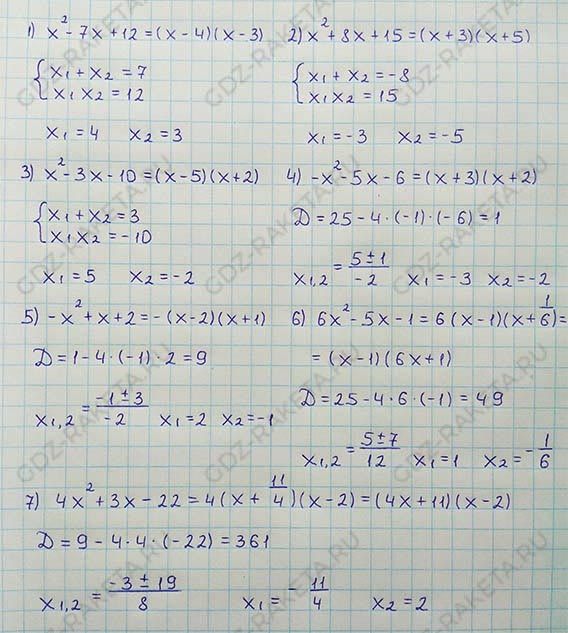 1) x²-7x+12=(x-4)(x-3)
{x₁+x₂=7
x₁x₂=12
x₁=4 x₂=3
2) x²+8x+15=(x+3)(x+5)
{x₁+x₂=-8
x₁x₂=15
x₁=-3 x₂=-5
3) x²-3x-10=(x-5)(x+2)
{x₁+x₂=3
x₁x₂=-10
x₁=5 x₂=-2
4) -x²-5x-6=(x+3)(x+2)
D=25-4·(-1)·(-6)=1
x₁,₂=(5±1)/(-2) x₁=-3 x₂=-2
5) -x²+x+2=-(x-2)(x+1)
D=1-4·(-1)·2=9
x₁,₂=(-1±3)/(-2) x₁=2 x₂=-1
6) 6x²-5x-1=6(x-1)(x+1/6)=
=(x-1)(6x+1)
D=25-4·6·(-1)=49
x₁,₂=(5±7)/12 x₁=1 x₂=-1/6
7) 4x²+3x-22=4(x+11/4)(x-2)=(4x+11)(x-2)
D=9-4·4·(-22)=361
x₁,₂=(-3±19)/8 x₁=-11/4 x₂=2
GDZ-RAKETA.RU
GDZ-RAKETA.RU
GDZ-RAKETA.RU
GDZ-RAKETA.RU
GDZ-RAKETA.RU
GDZ-RAKETA.RU